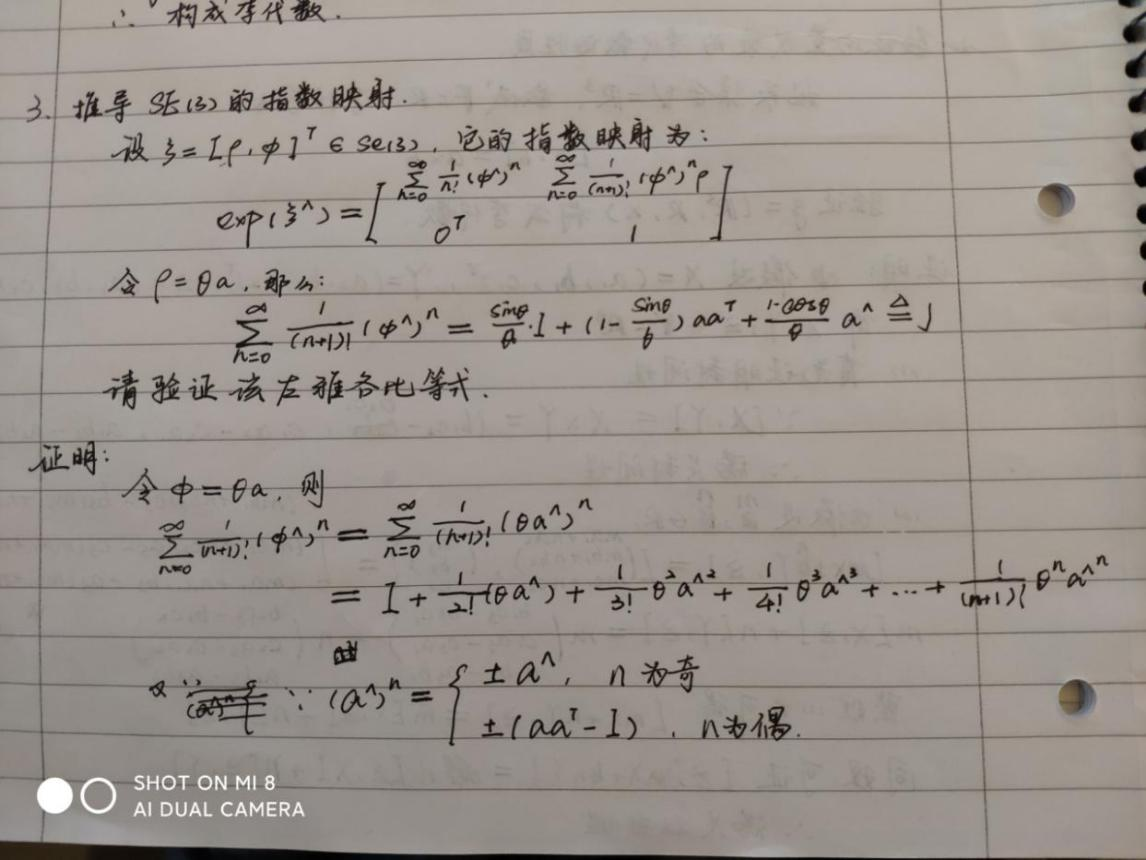 ∴ 构成李代数.
3. 推导 SE(3) 的指数映射.
设 ξ = [ρ, φ]ᵀ ∈ se(3), 它的指数映射为:
exp(ξ^) = [ ∑_{n=0}^{∞} 1/n! (φ^)ⁿ  ∑_{n=0}^{∞} 1/(n+1)! (φ^)ⁿ ρ ; 0ᵀ  1 ]
令 ρ = θa, 那么:
∑_{n=0}^{∞} 1/(n+1)! (φ^)ⁿ = sinθ/θ · I + (1 - sinθ/θ) aaᵀ + (1-cosθ)/θ a^ ≜ J
请验证该左雅各比等式.
证明:
令 φ = θa, 则
∑_{n=0}^{∞} 1/(n+1)! (φ^)ⁿ = ∑_{n=0}^{∞} 1/(n+1)! (θa^)ⁿ
= I + 1/2! (θa^) + 1/3! θ² a^² + 1/4! θ³ a^³ + ... + 1/(n+1)! θⁿ a^ⁿ
∵ (a^)ⁿ = { ± a^, n 为奇
± (aaᵀ - I), n 为偶.
SHOT ON MI 8
AI DUAL CAMERA